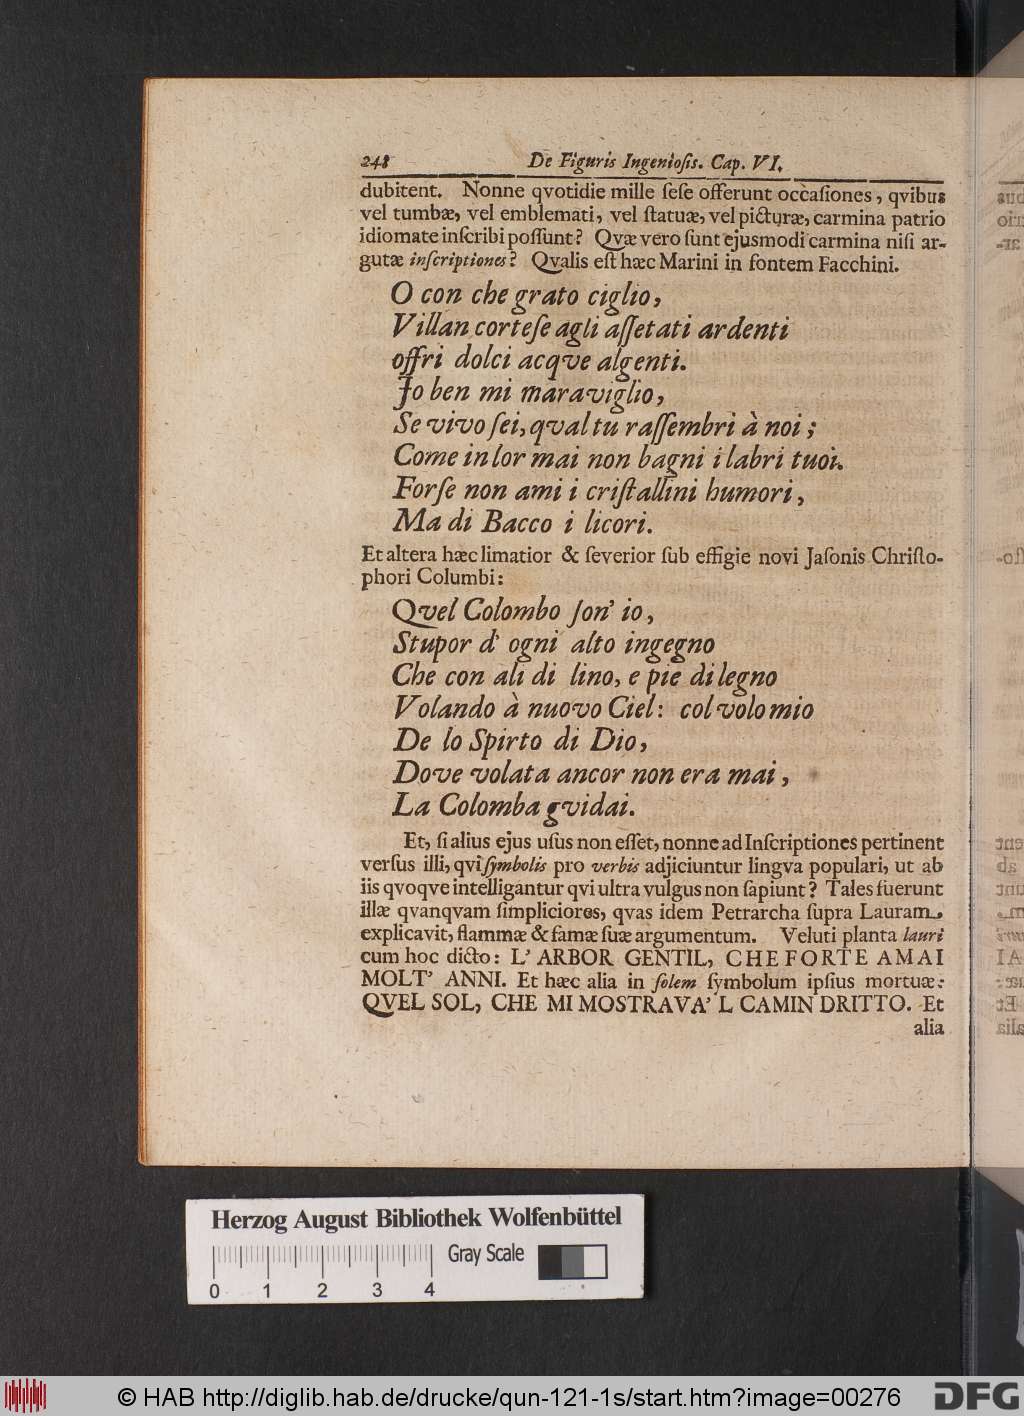 248 De Figuris Ingeniosis. Cap. VI.
dubitent. Nonne qvotidie mille ſeſe offerunt occaſiones, qvibus
vel tumbæ, vel emblemati, vel ſtatuæ, vel picturæ, carmina patrio
idiomate inſcribi poſſunt? Qvæ vero ſunt ejusmodi carmina niſi ar-
gutæ inſcriptiones? Qvalis eſt hæc Marini in fontem Facchini.
O con che grato ciglio,
Villan corteſe agli aſſetati ardenti
offri dolci acqve algenti.
Jo ben mi maraviglio,
Se vivo ſei, qval tu raſſembri à noi;
Come in lor mai non bagni i labri tuoi.
Forſe non ami i criſtallini humori,
Ma di Bacco i licori.
Et altera hæc limatior & ſeverior ſub effigie novi Jaſonis Chriſto-
phori Columbi:
Qvel Colombo ſon' io,
Stupor d' ogni alto ingegno
Che con ali di lino, e pie di legno
Volando à nuovo Ciel: col volo mio
De lo Spirto di Dio,
Dove volata ancor non era mai,
La Colomba gvidai.
Et, ſi alius ejus uſus non eſſet, nonne ad Inſcriptiones pertinent
verſus illi, qvi ſymbolis pro verbis adjiciuntur lingva populari, ut ab
iis qvoqve intelligantur qvi ultra vulgus non ſapiunt? Tales fuerunt
illæ qvanqvam ſimpliciores, qvas idem Petrarcha ſupra Lauram,
explicavit, flammæ & famæ ſuæ argumentum. Veluti planta lauri
cum hoc dicto: L' ARBOR GENTIL, CHE FORTE AMAI
MOLT' ANNI. Et hæc alia in ſolem ſymbolum ipſius mortuæ:
QVEL SOL, CHE MI MOSTRAVA' L CAMIN DRITTO. Et
alia
Herzog August Bibliothek Wolfenbüttel
Gray Scale
0 1 2 3 4
© HAB http://diglib.hab.de/drucke/qun-121-1s/start.htm?image=00276
DFG